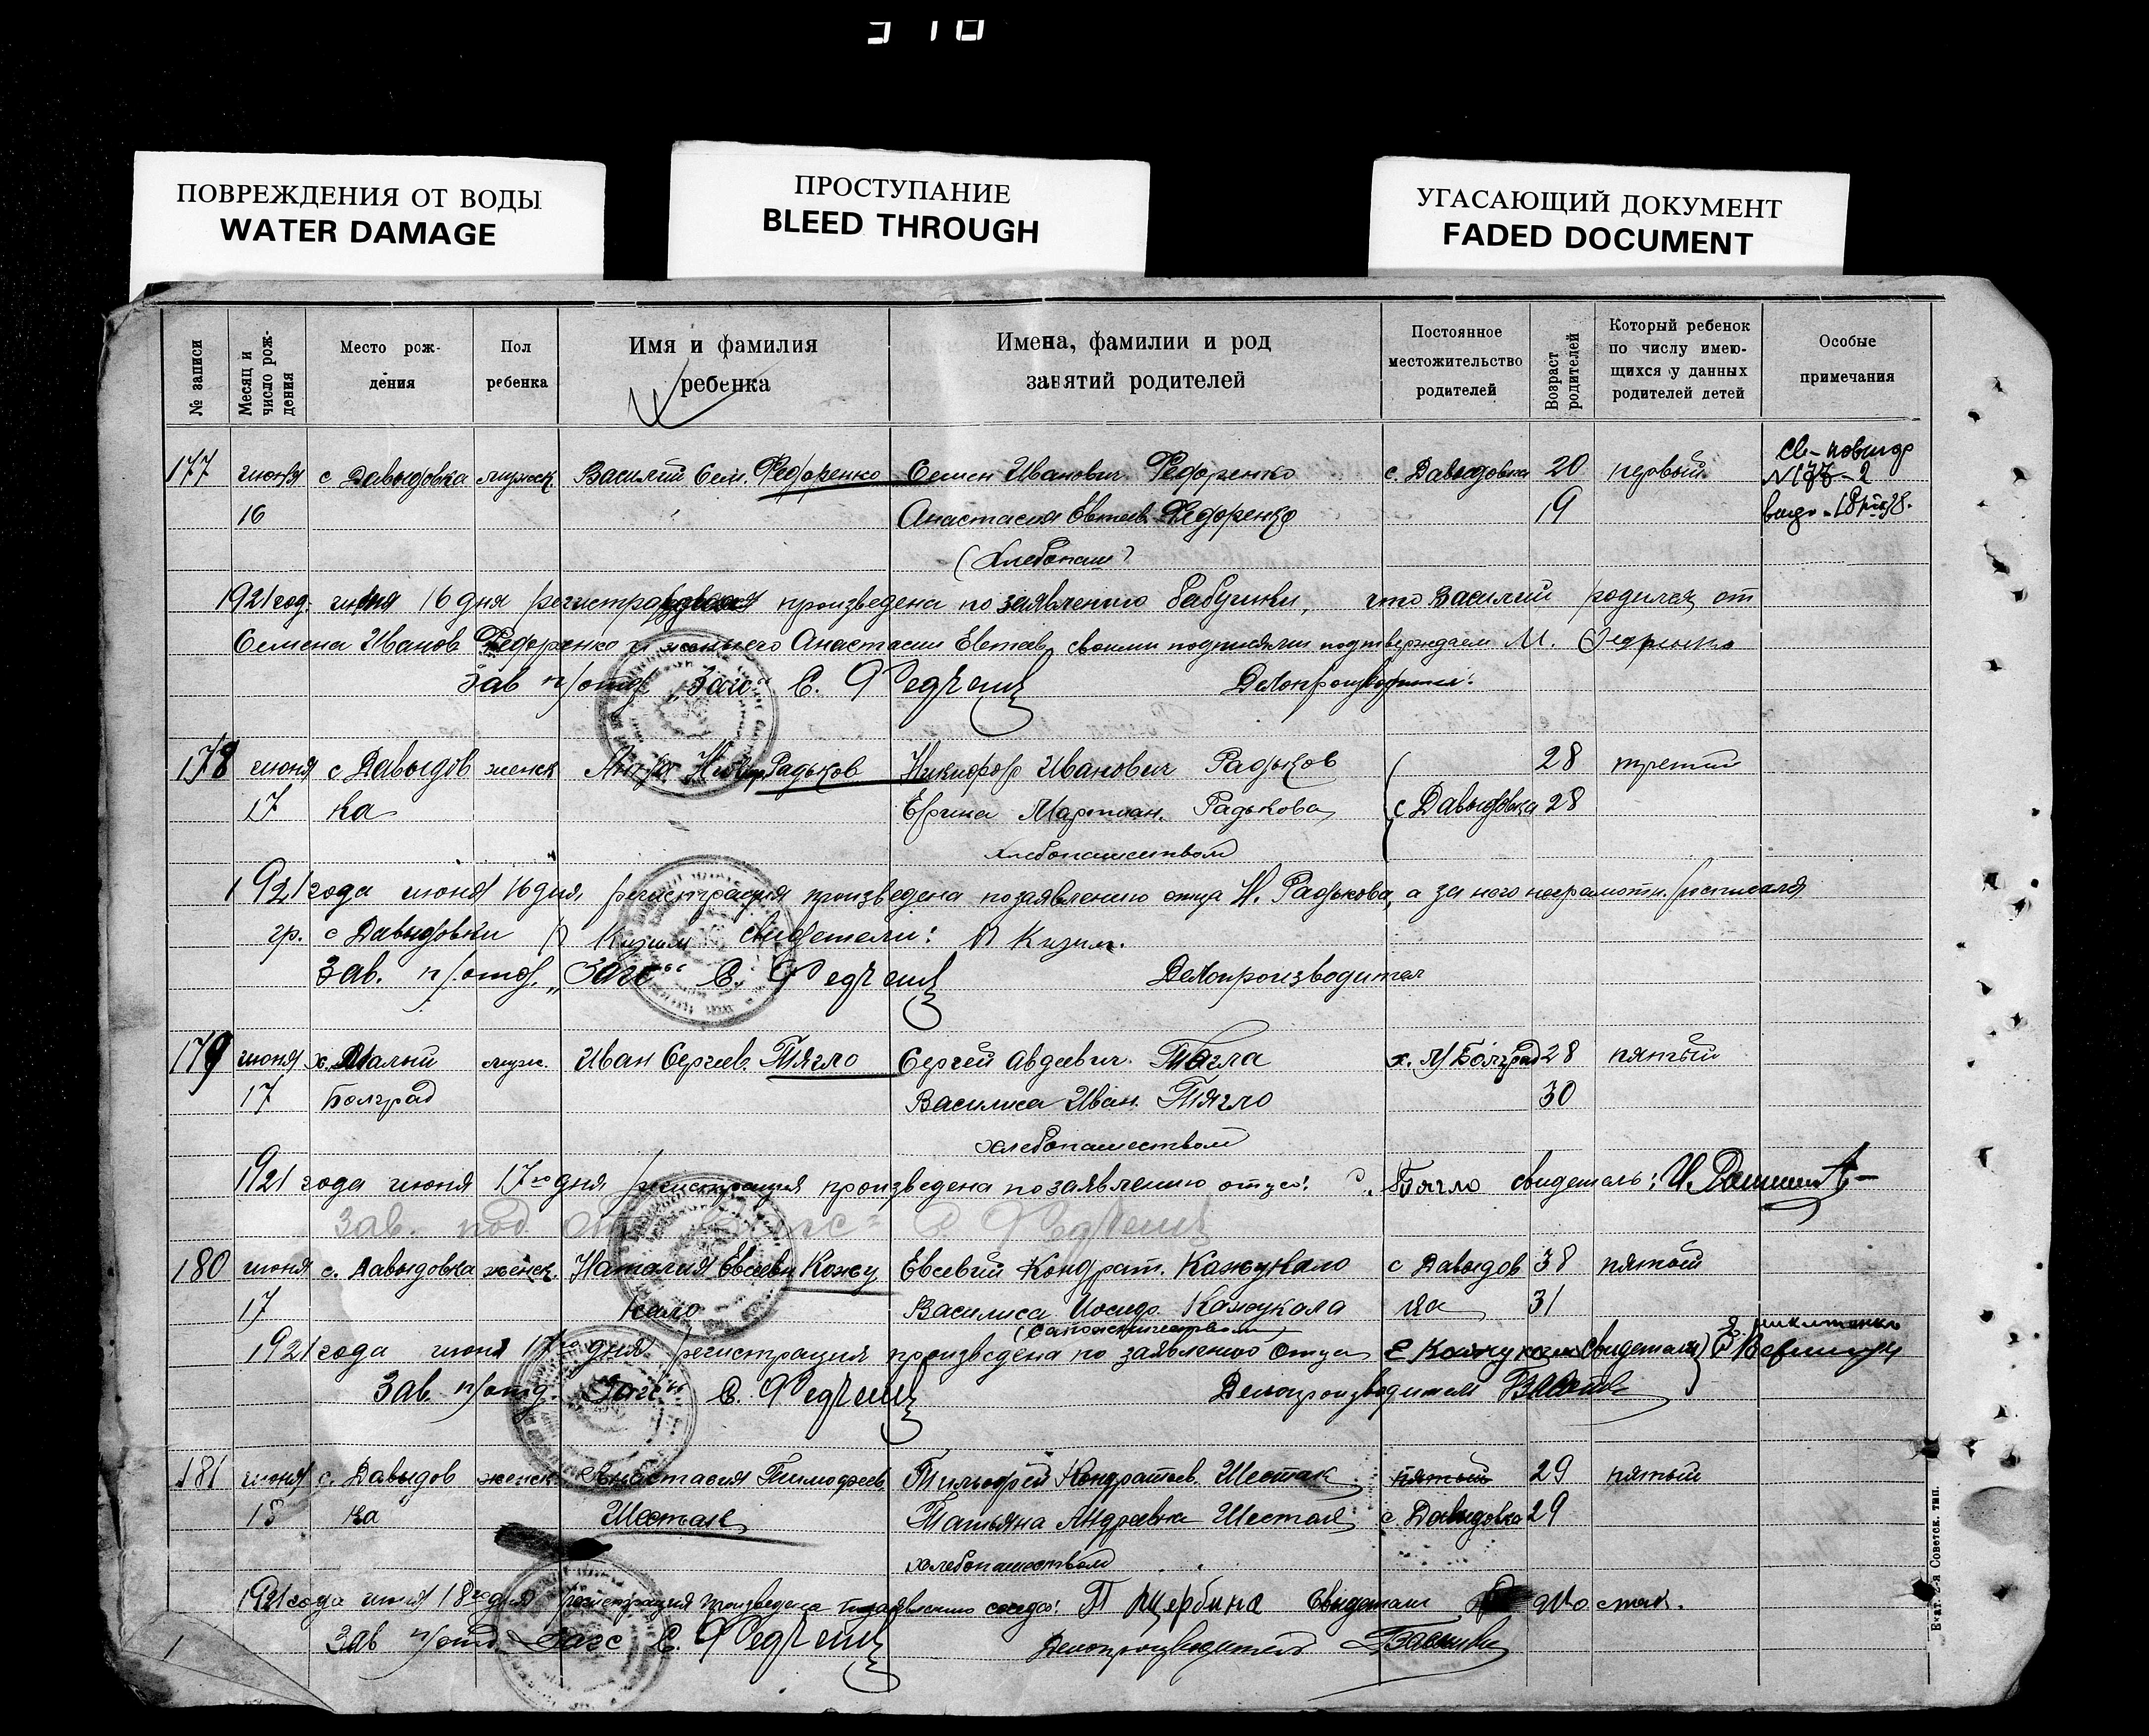 ПОВРЕЖДЕНИЯ ОТ ВОДЫ
WATER DAMAGE
ПРОСТУПАНИЕ
BLEED THROUGH
УГАСАЮЩИЙ ДОКУМЕНТ
FADED DOCUMENT
№ записи
Месяц и число рож-дения
Место рож-
дения
Пол
ребенка
Имя и фамилия
ребенка
Имена, фамилии и род
занятий родителей
Постоянное
местожительство
родителей
Возраст родителей
Который ребенок
по числу имею-
щихся у данных
родителей детей
Особые
примечания
177 июня с Давыдовка мужск Василий Сем. Федоренко Семен Иванович Федоренко с. Давыдовка 20 первый
16 Анастасия Евтеев. Федоренко 19
(хлебопаш)
1921 год. июня 16 дня произведена по заявлению бабушки, что Василий родился от
Семена Иванов Федоренко и Анастасии Евтеев, своими подписями подтверждаем М.
Зав п/отд Загс С. Делопроизводитель:
178 июня с Давыдов женск Радьков Никифор Иванович Радьков 28 третий
17 ка Мартиан. Радькова с Давыдовка 28
хлебопашеством
1921 года июня 16 дня, регистрация произведена по заявлению отца Н. Радькова, а за него неграмотн. росписался
гр. с Давыдовки Кизим свидетели: П Кизим.
Зав. п/отд. „Загс“ С. Делопроизводител
179 июня х. Малый мужс. Иван Сергеев. Тягло Сергей Авдеевич. Тягла х. М Болград 28 пятый
17 Болград Василиса Иван. Тягло 30
хлебопашеством
1921 года июня 17го дня регистрация произведена по заявлению отца: С. Тягло свидетель: И.
Зав. под отд Загс С.
180 июня с. Давыдовка женск. Наталия Евсеевн Кожу Евсевий Кондрат. Кожукало с Давыдов 38 пятый
17 кало Василиса Иосиф. Кожукала ка 31
(сапожничеством)
1921 года июня 17го дня регистрация произведена по заявлению отца Е Кожукало свидетели
Зав. п/отд. Загс С. Делопроизводитель
181 июня с. Давыдов женск Анастасия Тимофеев. Тимофей Кондратьев. Шестак пятый 29 пятый
18 ка Шестак Татьяна Андреевна Шестак с. Давыдовка 29
хлебопашеством
1921 года июня 18го дня регистрация произведена по заявлению соседа: П Щербина Свидетели
Зав п/отд. Загс С. Делопроизводитель
Екат. 2-я Советск. тип.